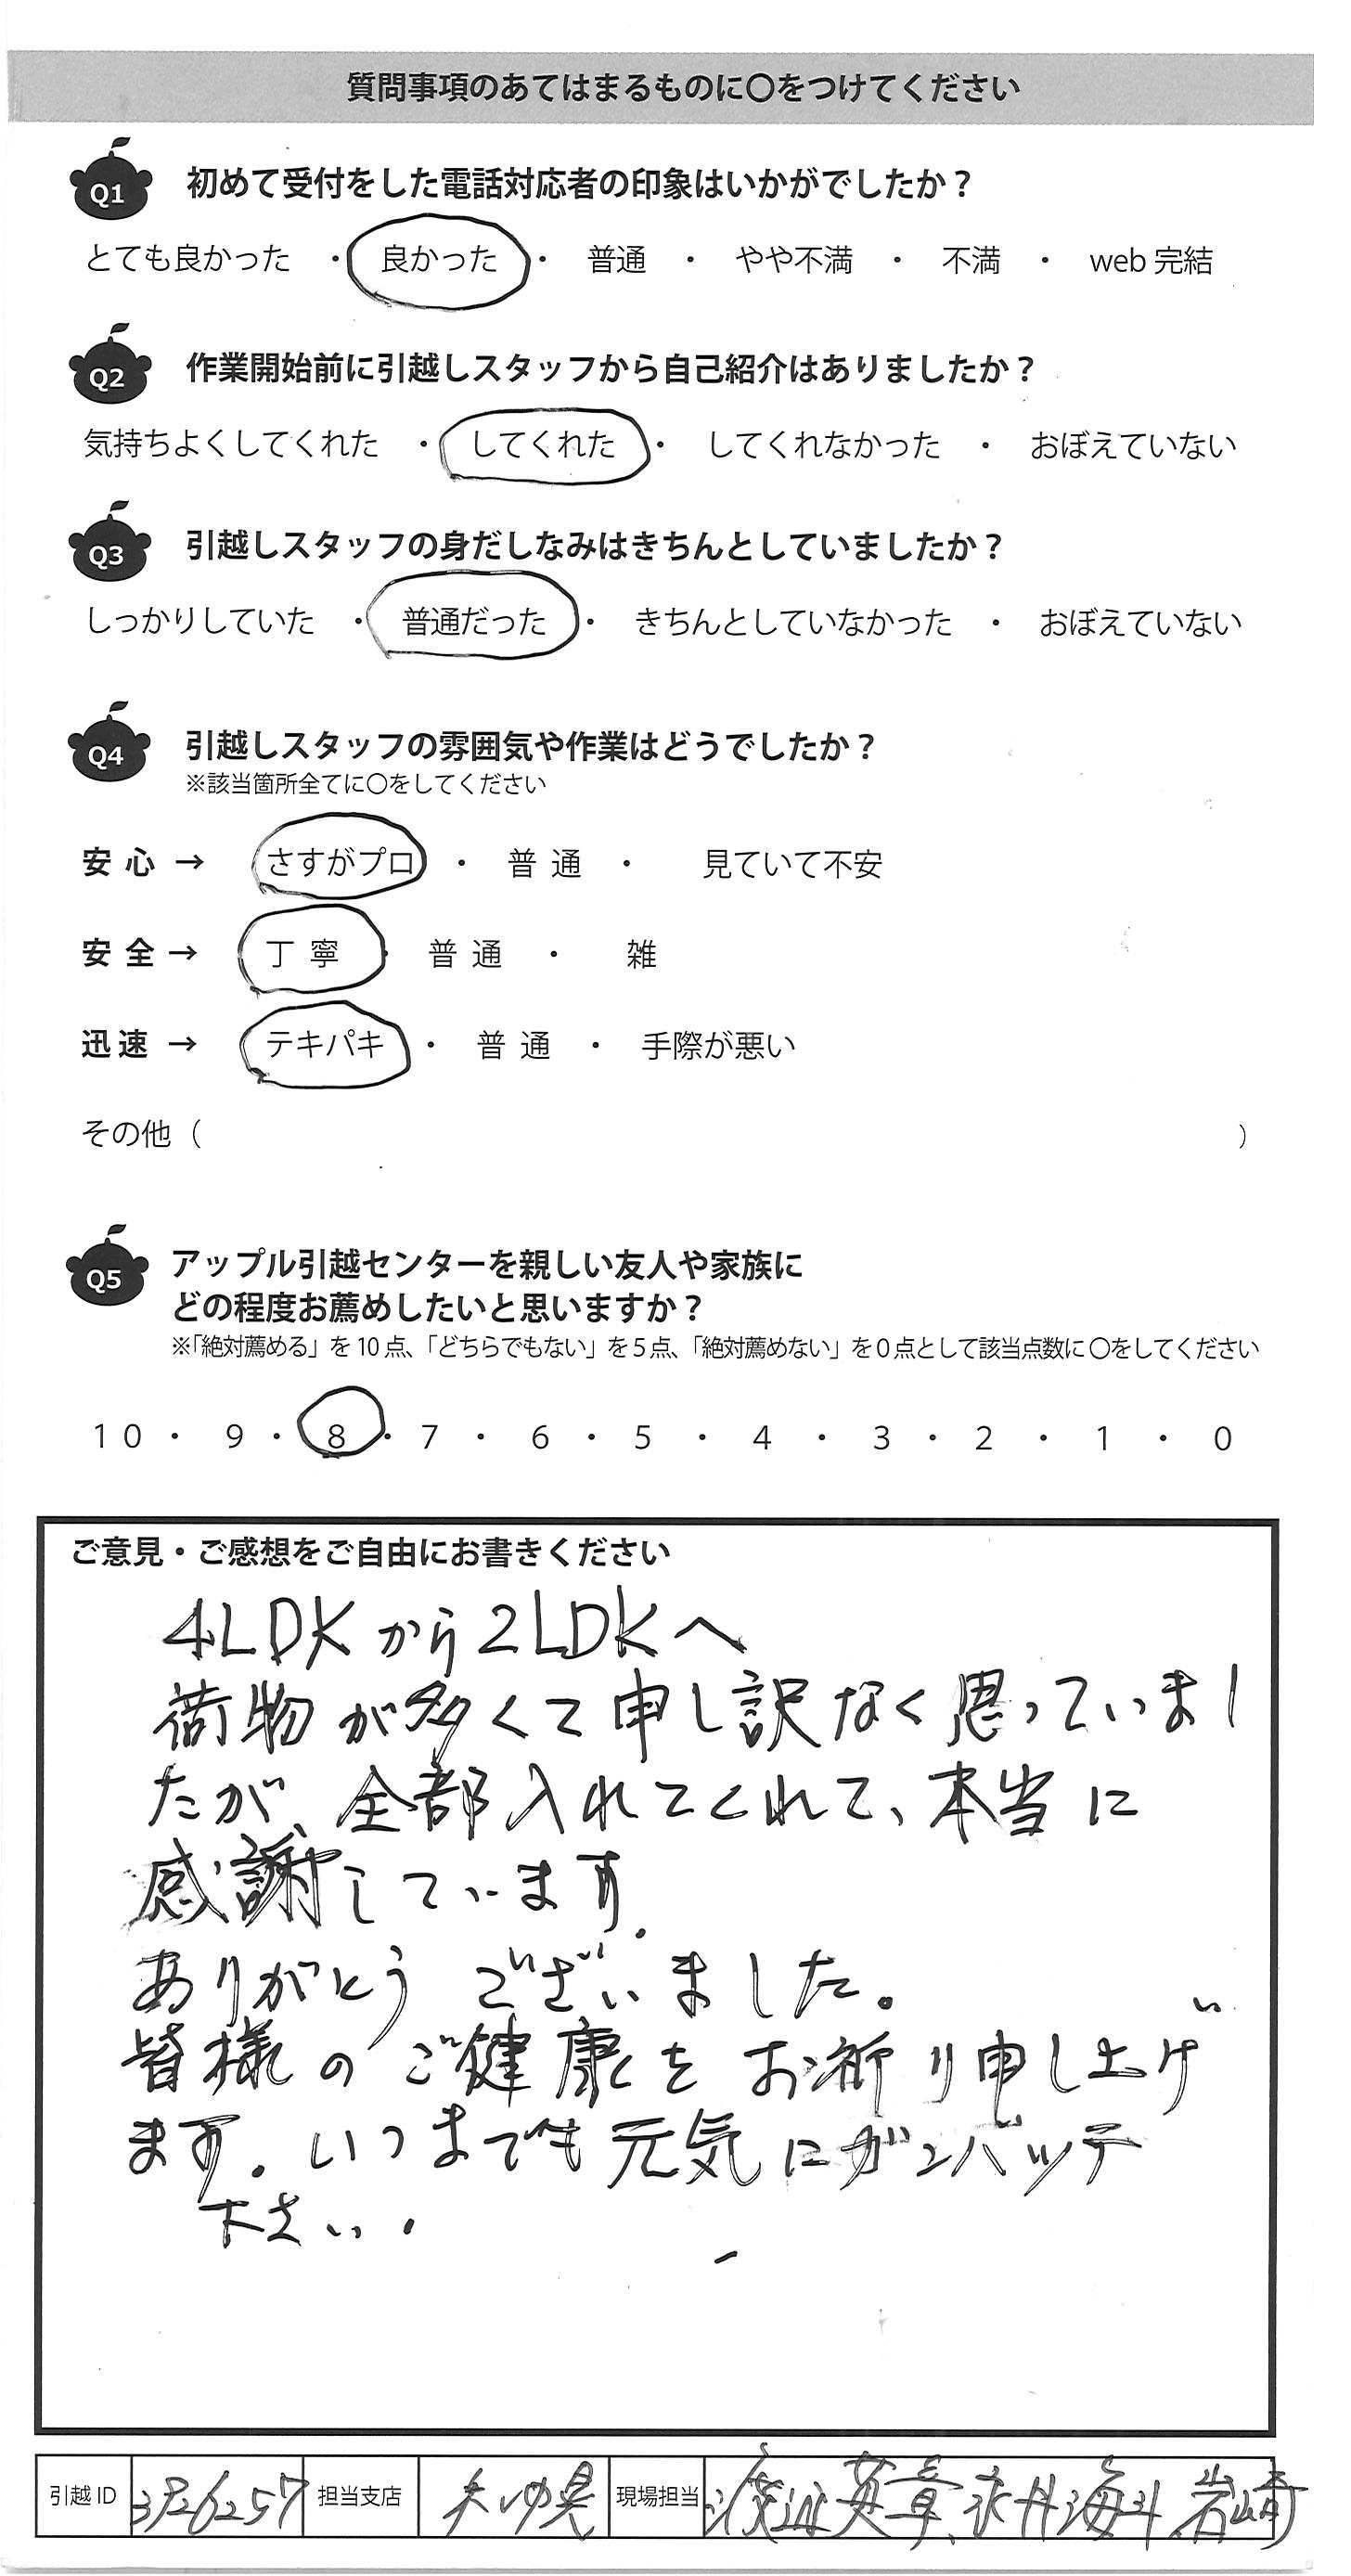 質問事項のあてはまるものに〇をつけてください
Q1 初めて受付をした電話対応者の印象はいかがでしたか？
とても良かった ・ 良かった ・ 普通 ・ やや不満 ・ 不満 ・ web 完結
Q2 作業開始前に引越しスタッフから自己紹介はありましたか？
気持ちよくしてくれた ・ してくれた ・ してくれなかった ・ おぼえていない
Q3 引越しスタッフの身だしなみはきちんとしていましたか？
しっかりしていた ・ 普通だった ・ きちんとしていなかった ・ おぼえていない
Q4 引越しスタッフの雰囲気や作業はどうでしたか？
※該当箇所全てに〇をしてください
安心 → さすがプロ ・ 普通 ・ 見ていて不安
安全 → 丁寧 ・ 普通 ・ 雑
迅速 → テキパキ ・ 普通 ・ 手際が悪い
その他（ ）
Q5 アップル引越センターを親しい友人や家族に
どの程度お薦めしたいと思いますか？
※「絶対薦める」を10点、「どちらでもない」を5点、「絶対薦めない」を0点として該当点数に〇をしてください
10 ・ 9 ・ 8 ・ 7 ・ 6 ・ 5 ・ 4 ・ 3 ・ 2 ・ 1 ・ 0
ご意見・ご感想をご自由にお書きください
4LDKから2LDKへ
荷物が多くて申し訳なく思っていまし
たが、全部入れてくれて、本当に
感謝しています.
ありがとうございました。
皆様のご健康をお祈り申し上げ
ます. いつまでも元気にガンバッテ
下さい.
引越ID 担当支店 現場担当 渡辺英章、永井海斗、岩崎